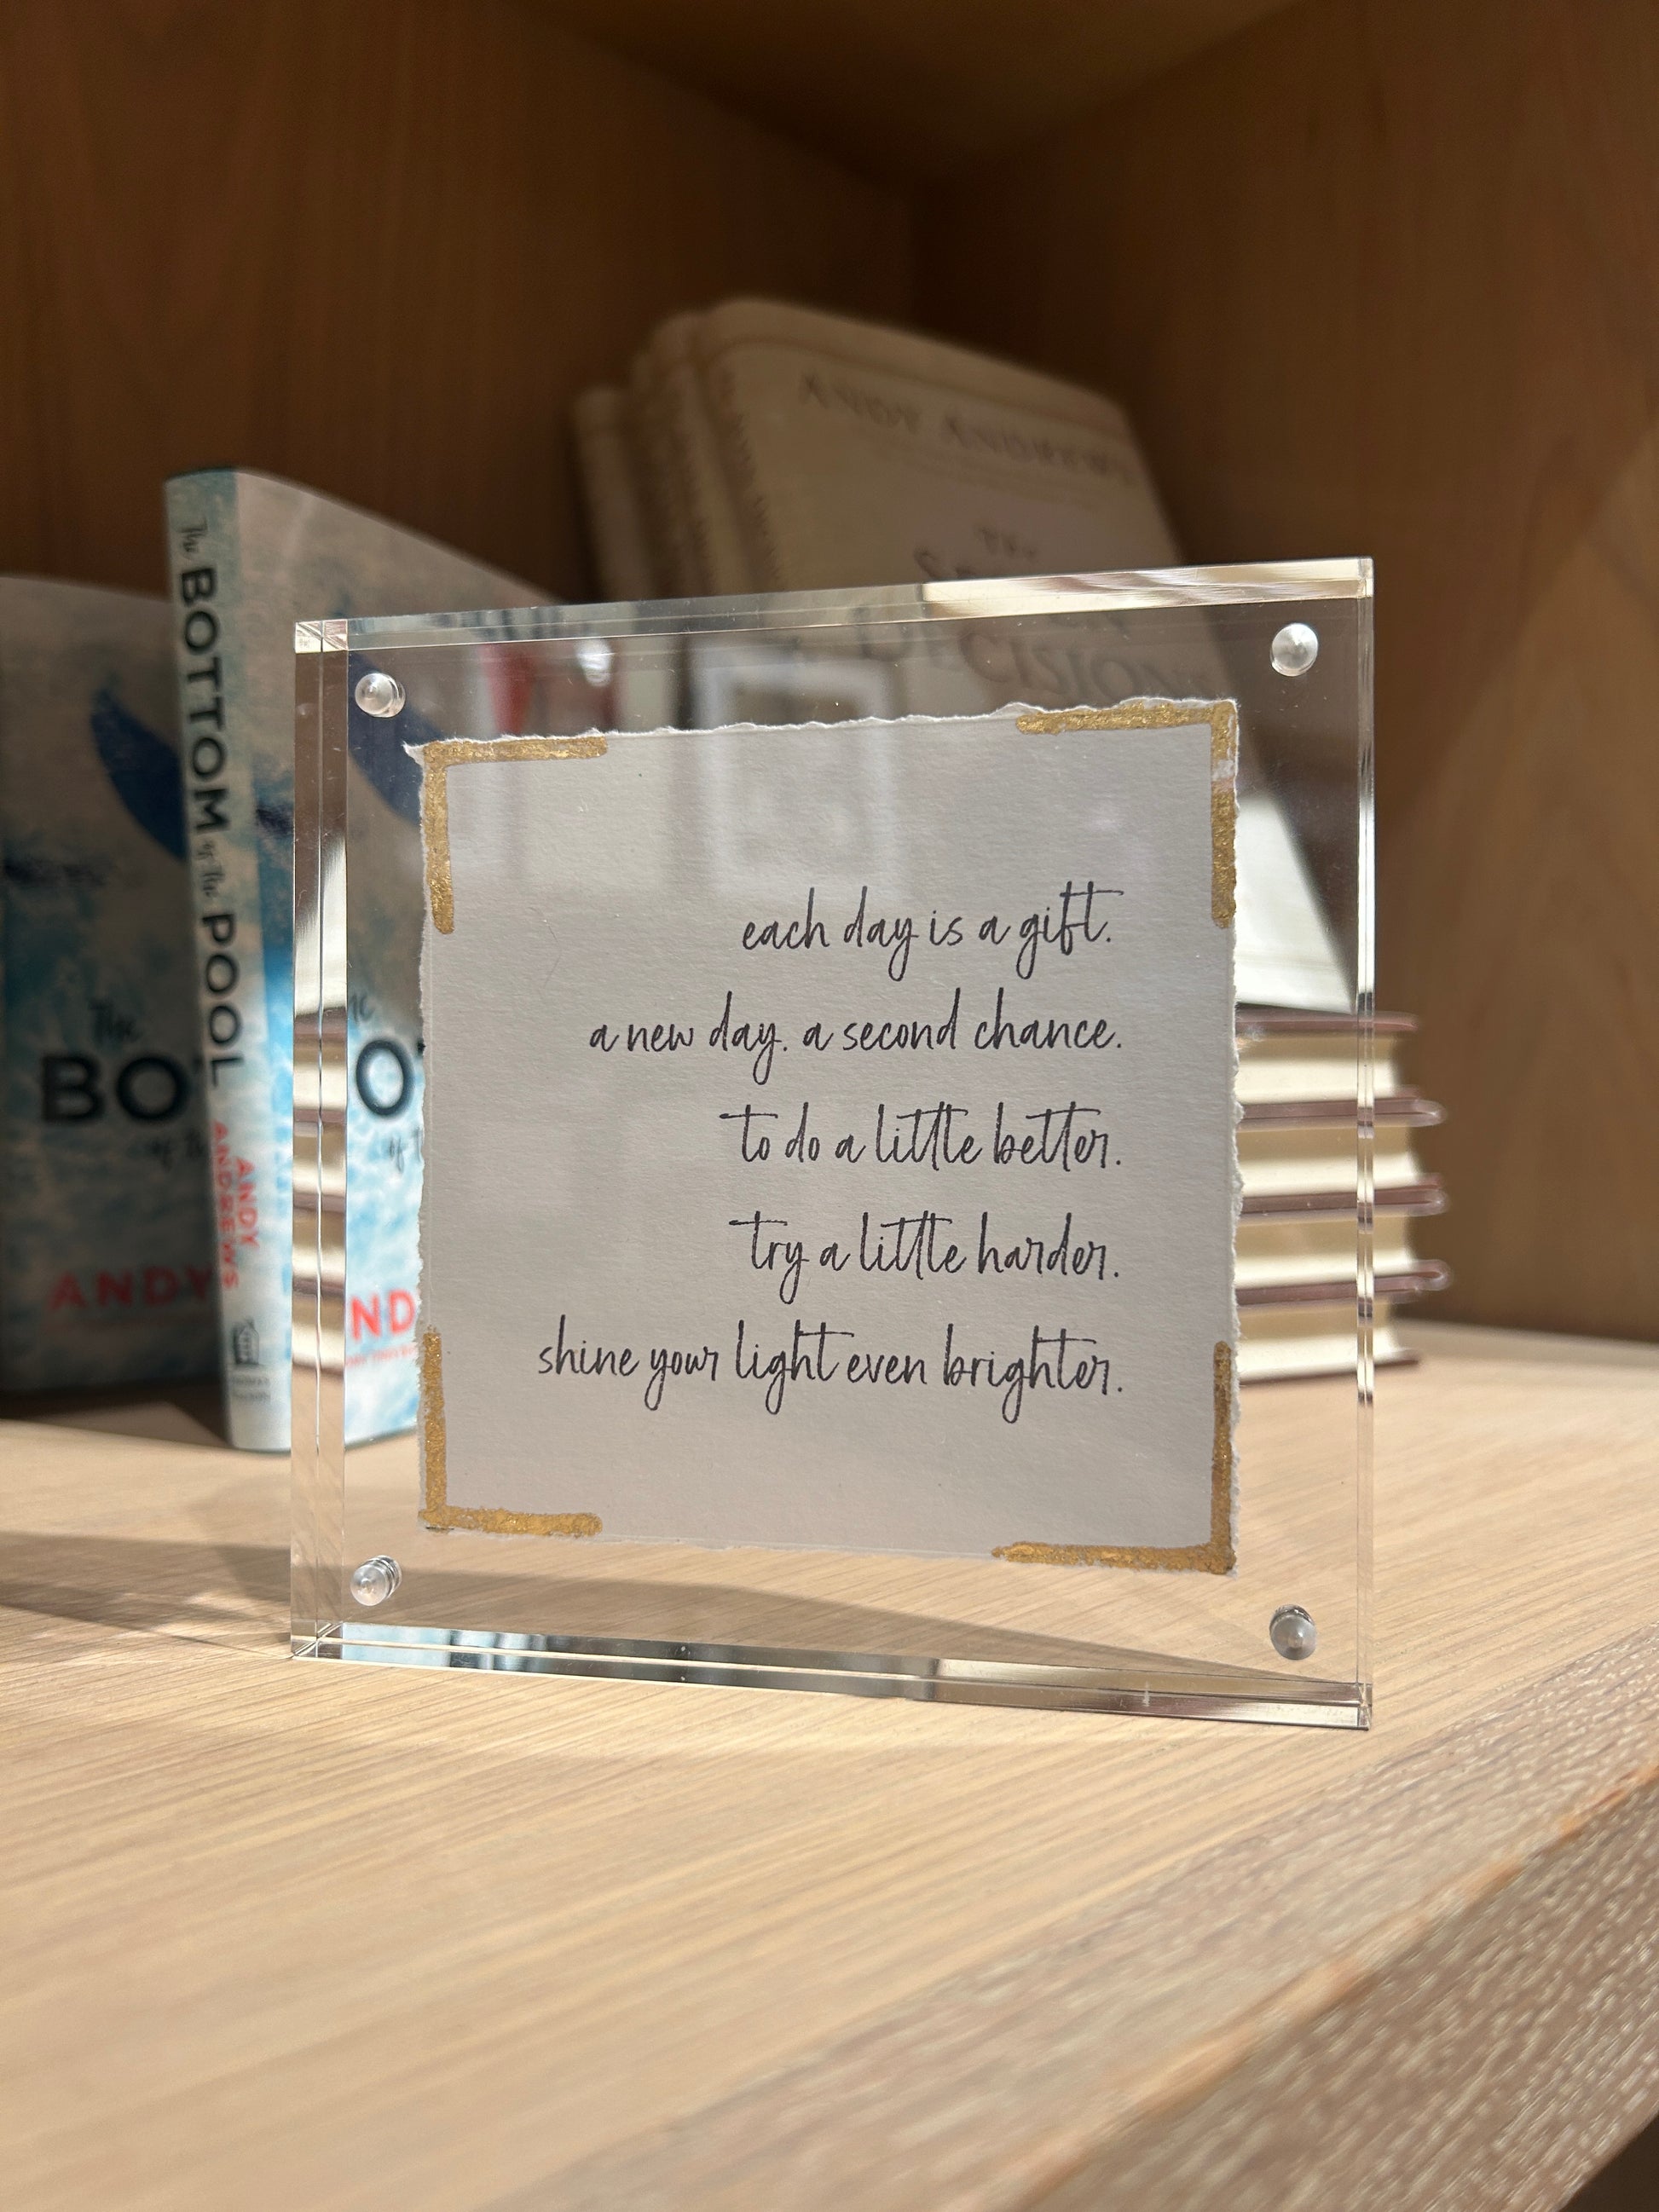 ANDY ANDREWS
The
DECISIONS
The BOTTOM of the POOL
ANDY ANDREWS
The
BO
of
ANDY
O
of
ND
each day is a gift.
a new day. a second chance.
to do a little better.
try a little harder.
shine your light even brighter.